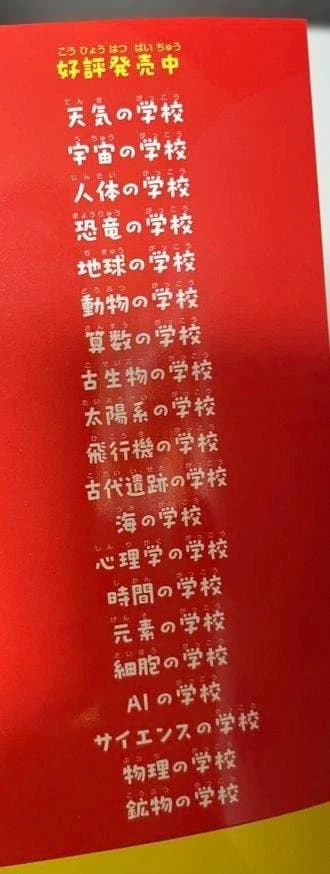 好評発売中
天気の学校
宇宙の学校
人体の学校
恐竜の学校
地球の学校
動物の学校
算数の学校
古生物の学校
太陽系の学校
飛行機の学校
古代遺跡の学校
海の学校
心理学の学校
時間の学校
元素の学校
細胞の学校
AIの学校
サイエンスの学校
物理の学校
鉱物の学校